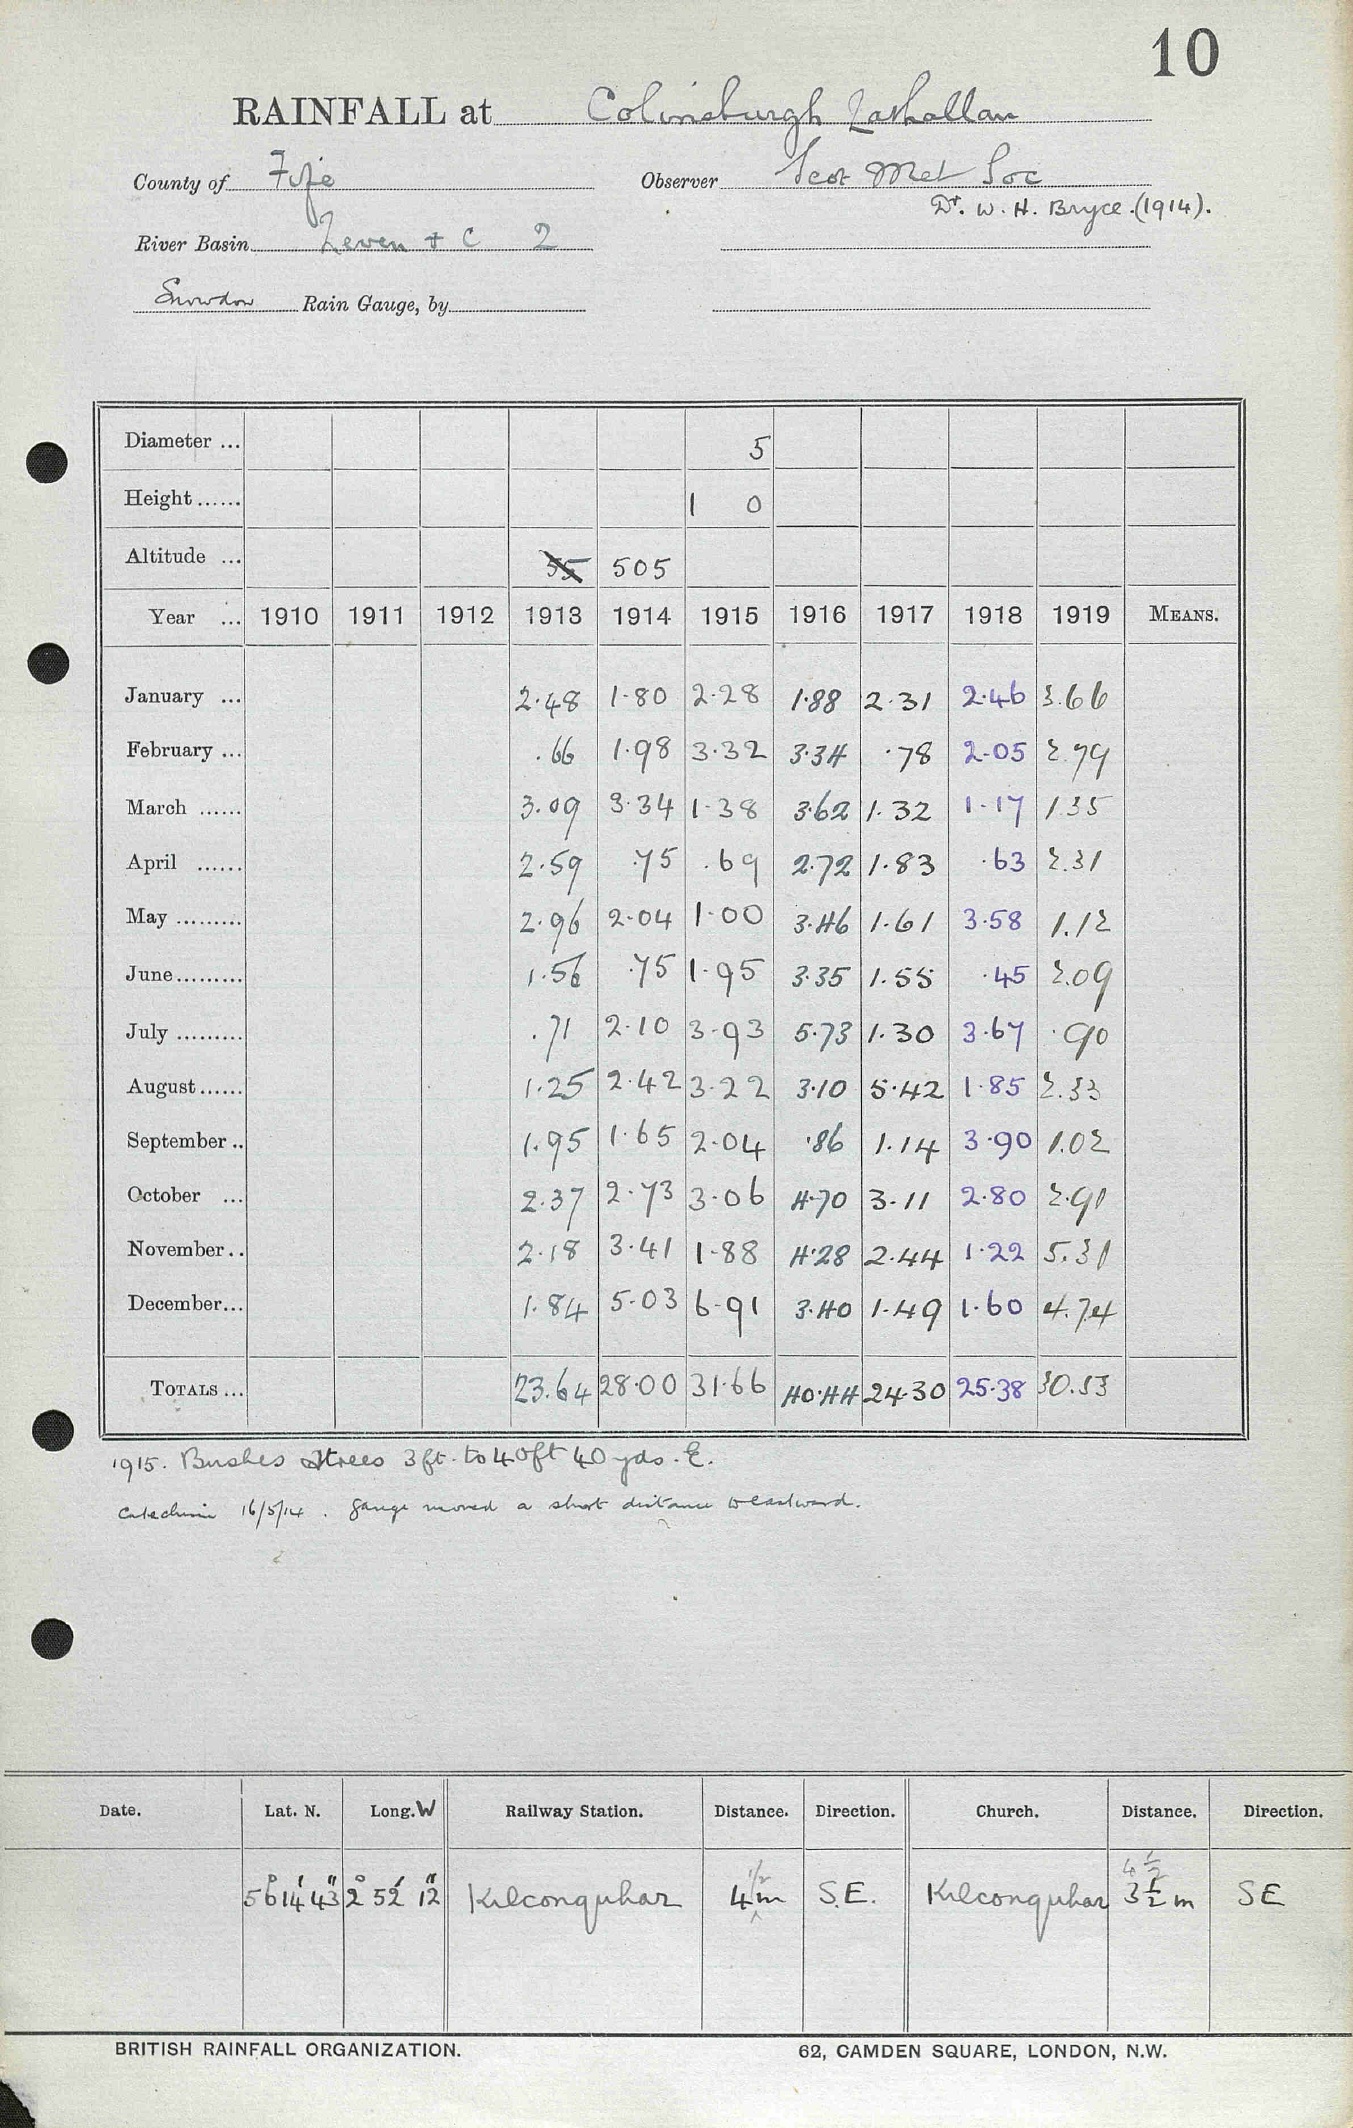 10
RAINFALL at Colinsburgh Lathallan
County of Fife Observer Scot Met Soc
Dr. W. H. Bryce. (1914).
River Basin Leven + C 2
Snowdon Rain Gauge, by
Diameter ... 5
Height ...... 1 0
Altitude ... 55 505
Year ... 1910 1911 1912 1913 1914 1915 1916 1917 1918 1919 MEANS.
January ... 2.48 1.80 2.28 1.88 2.31 2.46 3.66
February ... .66 1.98 3.32 3.34 .78 2.05 2.79
March ...... 3.09 3.34 1.38 3.62 1.32 1.17 1.35
April ...... 2.59 .75 .69 2.72 1.83 .63 2.31
May ......... 2.96 2.04 1.00 3.46 1.61 3.58 1.12
June......... 1.56 .75 1.95 3.35 1.55 .45 2.09
July ......... .71 2.10 3.93 5.73 1.30 3.67 .90
August...... 1.25 2.42 3.22 3.10 5.42 1.85 2.33
September .. 1.95 1.65 2.04 .86 1.14 3.90 1.02
October ... 2.37 2.73 3.06 4.70 3.11 2.80 2.91
November.. 2.18 3.41 1.88 4.28 2.44 1.22 5.31
December... 1.84 5.03 6.91 3.40 1.49 1.60 4.74
TOTALS ... 23.64 28.00 31.66 40.44 24.30 25.38 30.53
1915. Bushes & trees 3 ft. to 40 ft 40 yds. E.
Catechism 16/5/14. gauge moved a short distance to eastward.
Date. Lat. N. Long. W Railway Station. Distance. Direction. Church. Distance. Direction.
4 1/2
56° 14' 43" 2° 52' 12" Kilconquhar 4 1/2 m S.E. Kilconquhar 3 1/2 m SE
BRITISH RAINFALL ORGANIZATION. 62, CAMDEN SQUARE, LONDON, N.W.